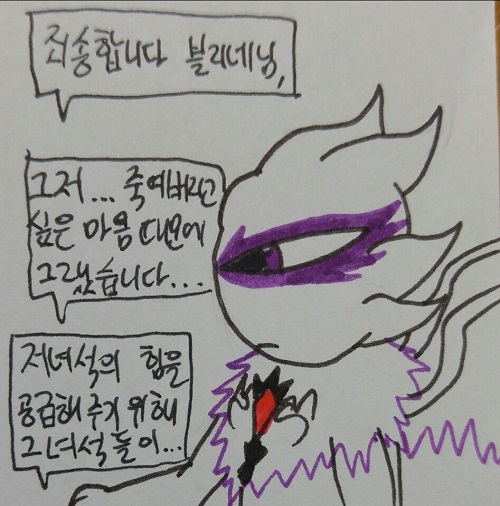 죄송합니다 블리네님,
그저... 죽여버리고
싶은 마음 때문에
그랬습니다...
저녀석의 힘을
공급해 주기 위해
그녀석들이...